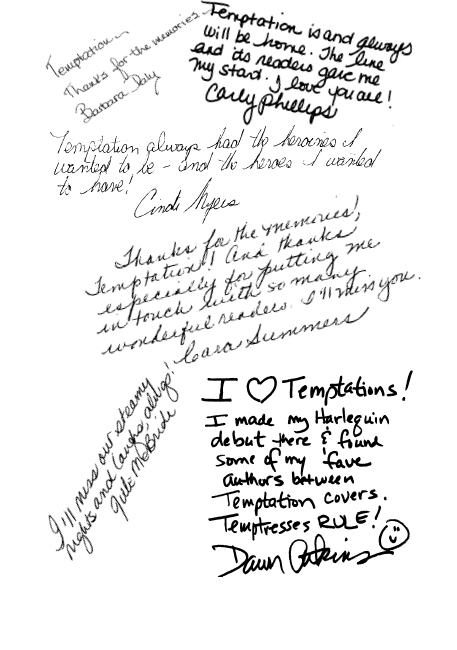 Temptation—
Thanks for the memories.
Barbara Daly
Temptation is and always
will be home. The line
and its readers gave me
my start. I love you all!
Carly Phillips
Temptation always had the heroines I
wanted to be – and the heroes I wanted
to have!
Cindi Myers
Thanks for the memories,
Temptation! And thanks
especially for putting me
in touch with so many
wonderful readers. I'll miss you.
Cara Summers
I'll miss our steamy
nights and laughs, always!
Jule McBride
I ♡ Temptations!
I made my Harlequin
debut there & found
some of my fave
authors between
Temptation covers.
Temptresses RULE!
Dawn Atkins